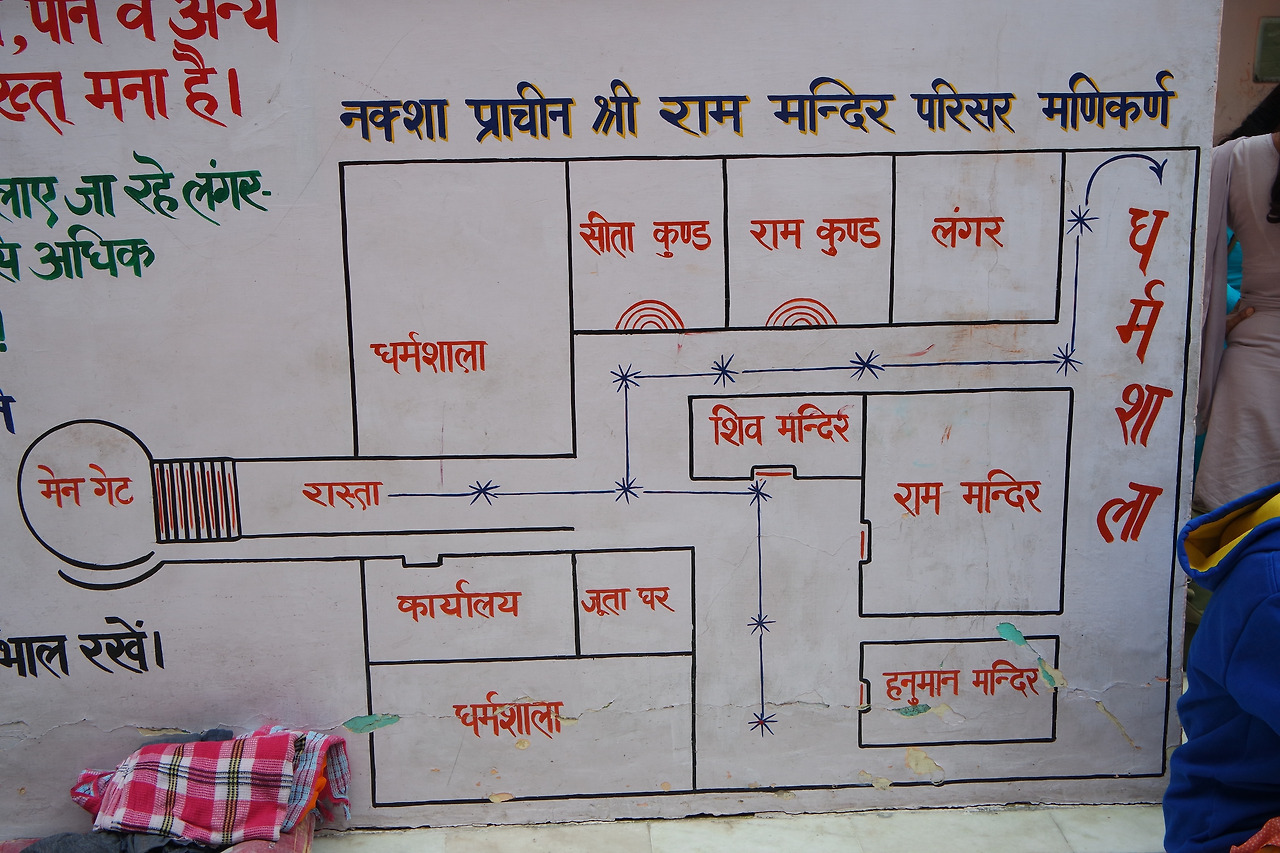 , पान व अन्य
सख्त मना है।
चलाए जा रहे लंगर-
से अधिक
भाल रखें।
नक्शा प्राचीन श्री राम मन्दिर परिसर मणिकर्ण
धर्मशाला
सीता कुण्ड
राम कुण्ड
लंगर
धर्मशाला
शिव मन्दिर
मेन गेट
रास्ता
राम मन्दिर
कार्यालय
जूता घर
हनुमान मन्दिर
धर्मशाला